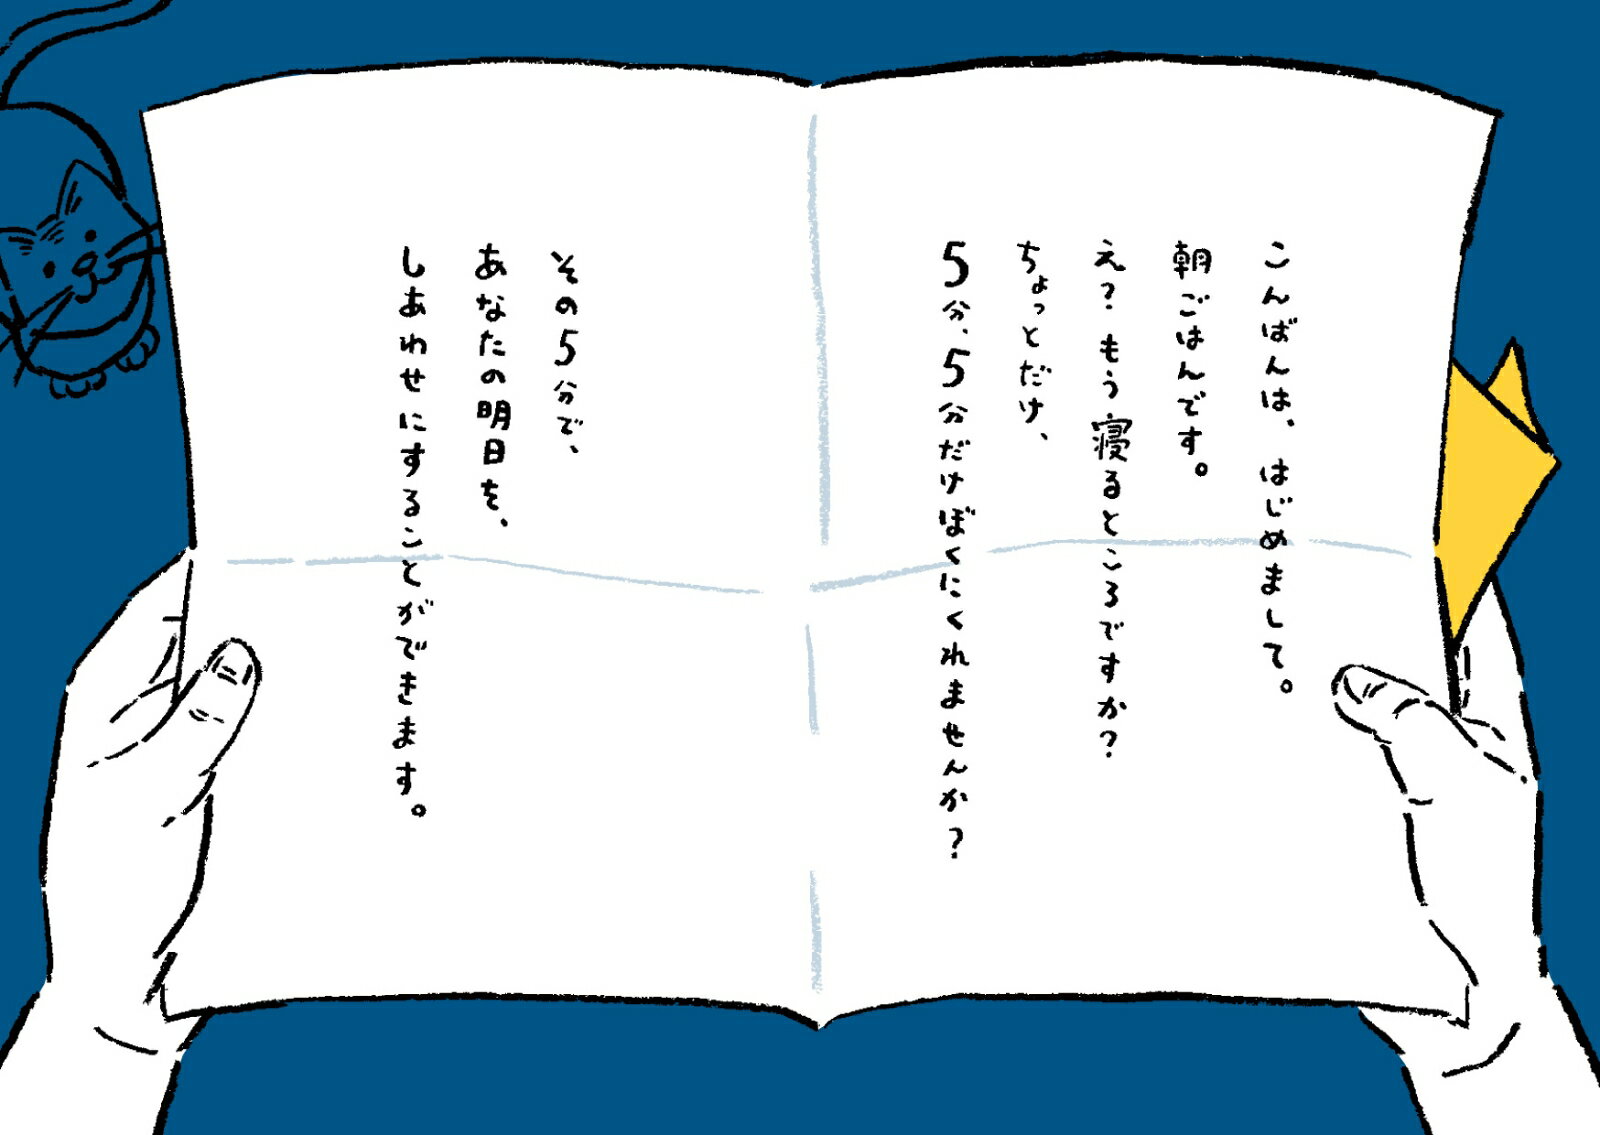 こんばんは、はじめまして。
朝ごはんです。
え？もう寝るところですか？
ちょっとだけ、
5分、5分だけぼくにくれませんか？
その5分で、
あなたの明日を、
しあわせにすることができます。